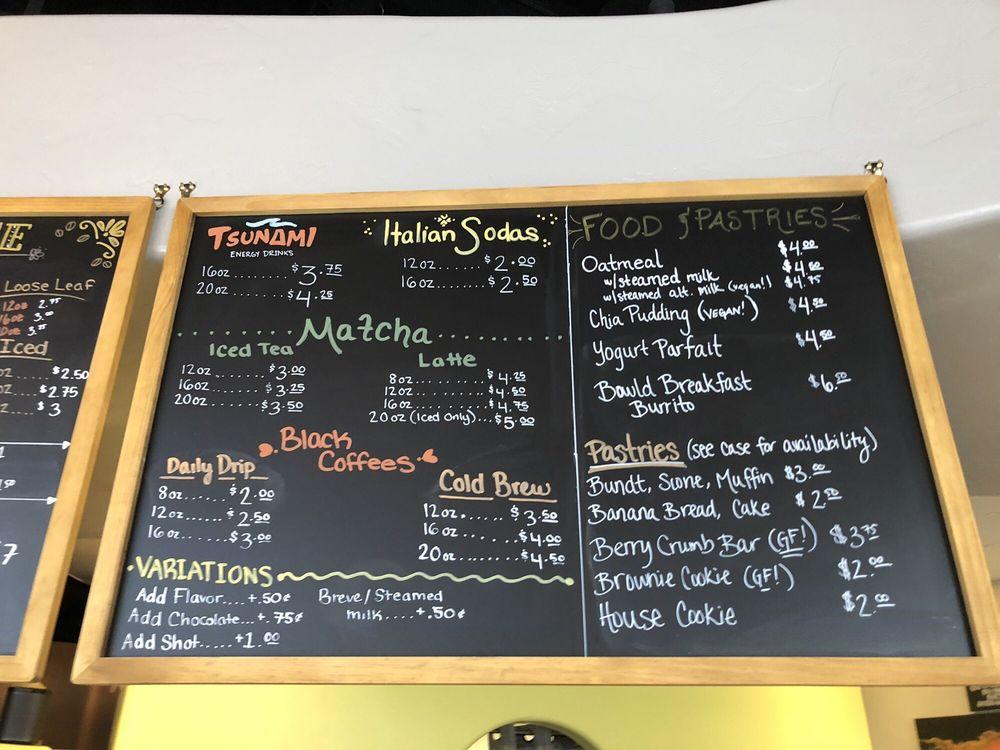 Loose Leaf
12oz 2.75
16oz 3.00
Iced
$2.50
$2.75
$3
TSUNAMI
ENERGY DRINKS
16oz.......$3.75
20oz.......$4.25
Italian Sodas
12oz.......$2.00
16oz.......$2.50
Matcha
Iced Tea
12oz.......$3.00
16oz.......$3.25
20oz.......$3.50
Latte
8oz.......$4.25
12oz.......$4.50
16oz.......$4.75
20oz (Iced Only)...$5.00
Black
Coffees
Daily Drip
8oz......$2.00
12oz......$2.50
16oz......$3.00
Cold Brew
12oz......$3.50
16oz......$4.00
20oz......$4.50
VARIATIONS
Add Flavor....+.50¢
Add Chocolate...+.75¢
Add Shot.....+1.00
Breve/Steamed
milk....+.50¢
FOOD & PASTRIES
Oatmeal $4.00
w/steamed milk $4.50
w/steamed alt. milk (vegan!) $4.75
Chia Pudding (VEGAN!) $4.50
Yogurt Parfait $4.50
Bowld Breakfast $6.50
Burrito
Pastries (see case for availability)
Bundt, Scone, Muffin $3.00
Banana Bread, Cake $2.50
Berry Crumb Bar (GF!) $3.75
Brownie Cookie (GF!) $2.00
House Cookie $2.00